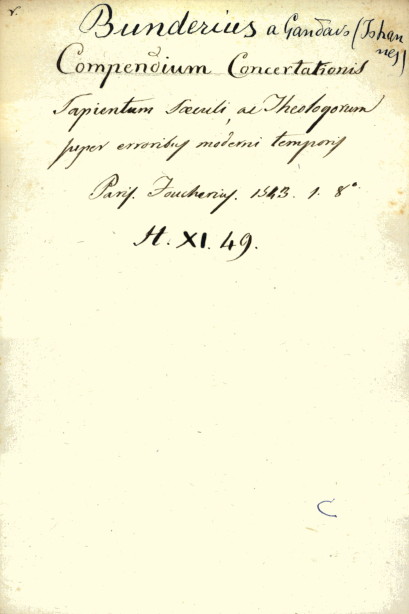 r.
Bunderius a Gandavo (Johannes)
Compendium Concertationis
Sapientum Sæculi, ac Theologorum
super erroribus moderni temporis
Paris. Foucherius. 1543. 1. 8°
H. XI. 49.